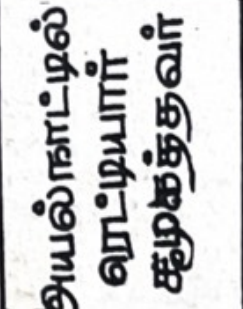 அயல்நாட்டில்
ரெட்டியார்
சமூகத்தவர்